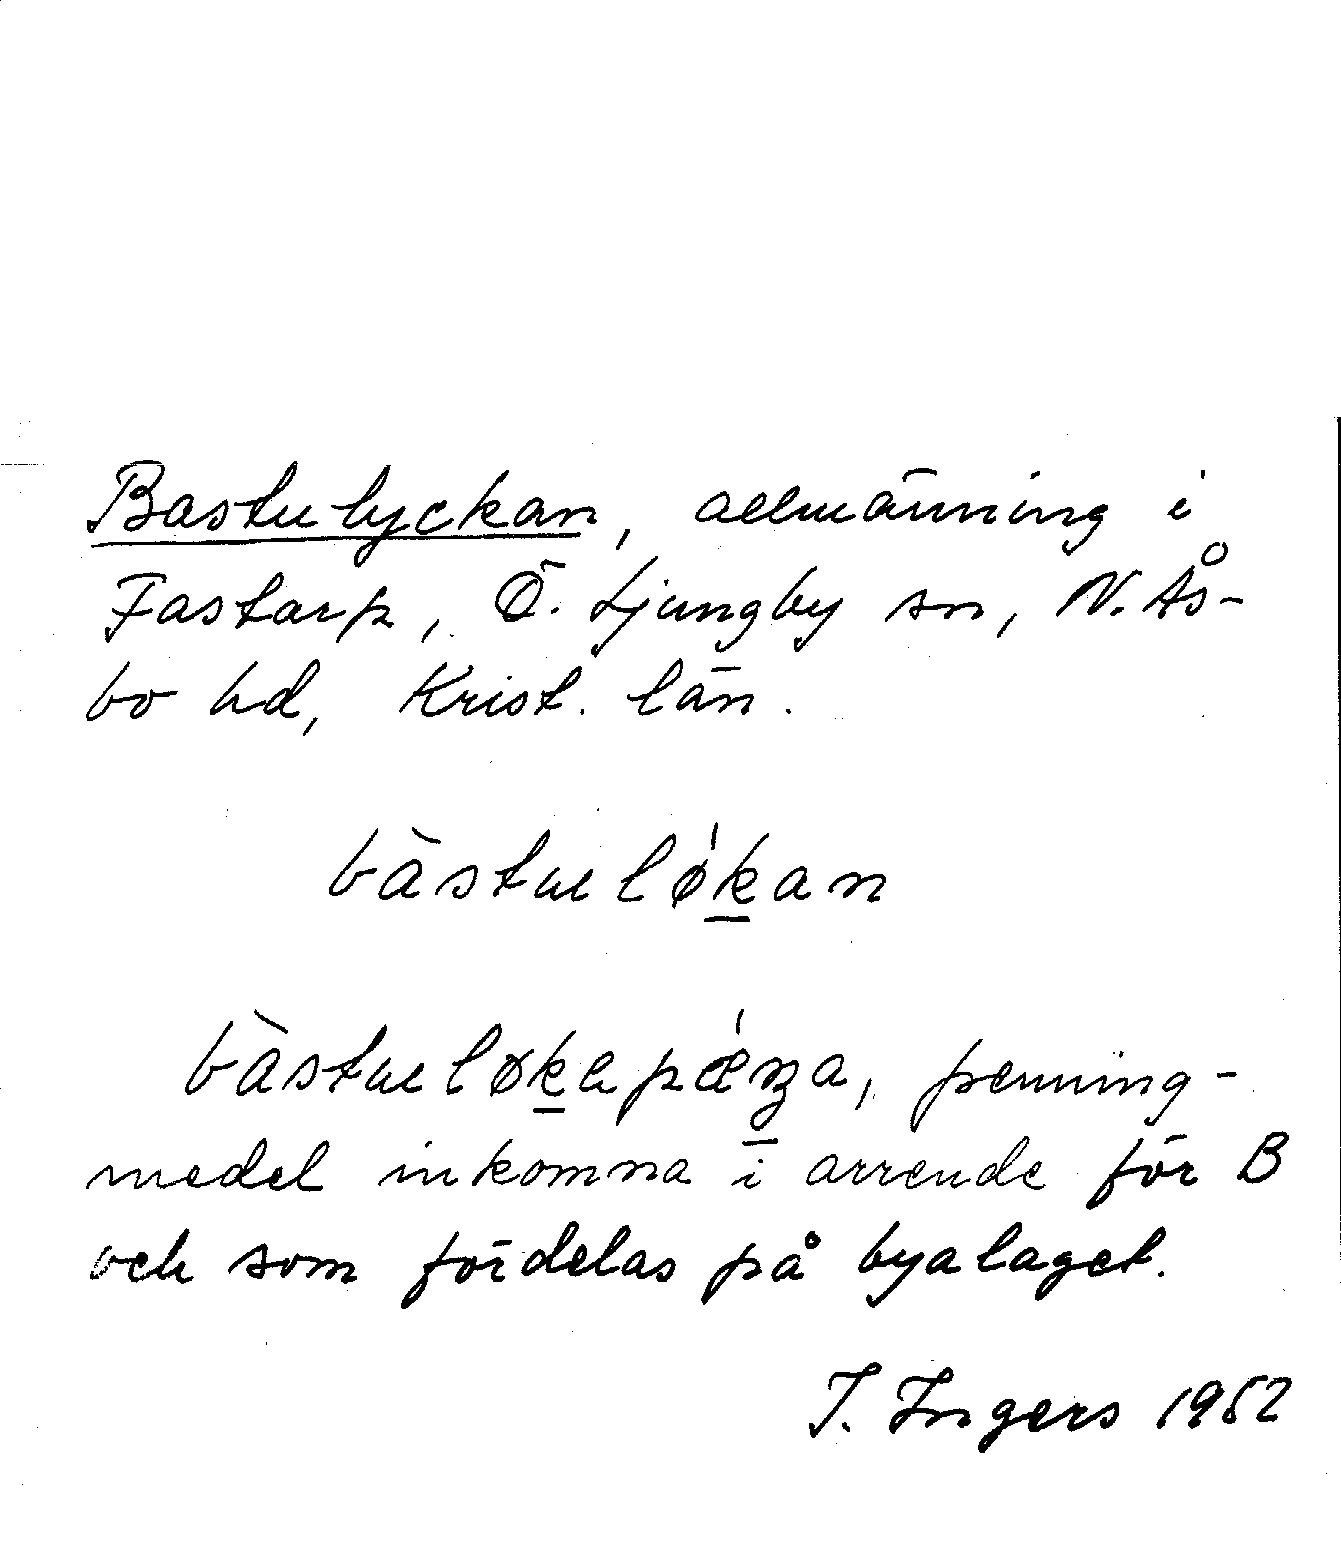 Bastulyckan, allmänning i
Fastarp, Ö. Ljungby sn, N. Ås-
bo hd, Krist. län.
bàstuelǿkan
bàstueløkapǽŋa, penning-
medel inkomna i arrende för B
och som fördelas på byalaget.
I. Ingers 1962